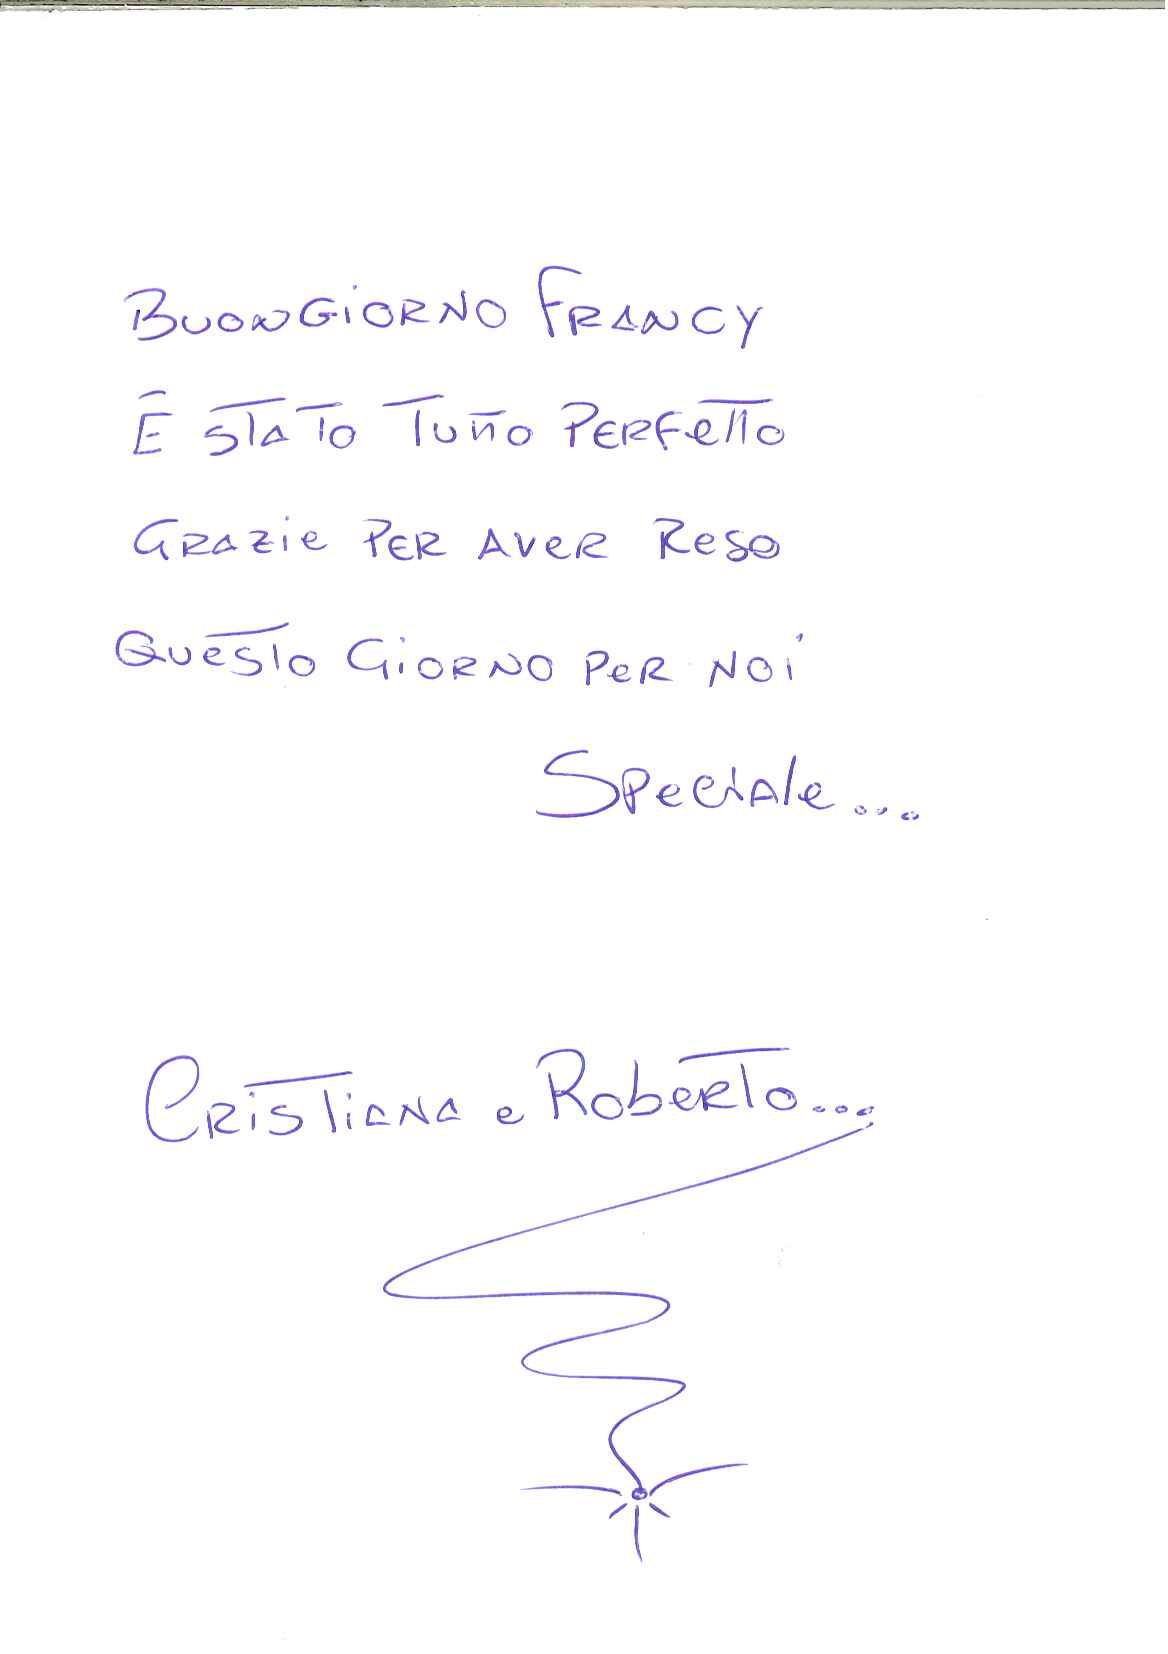 BUONGIORNO FRANCY
È STATO TUTTO PERFETTO
GRAZIE PER AVER RESO
QUESTO GIORNO PER NOI
SPECIALE...
CRISTIANA e ROBERTO...